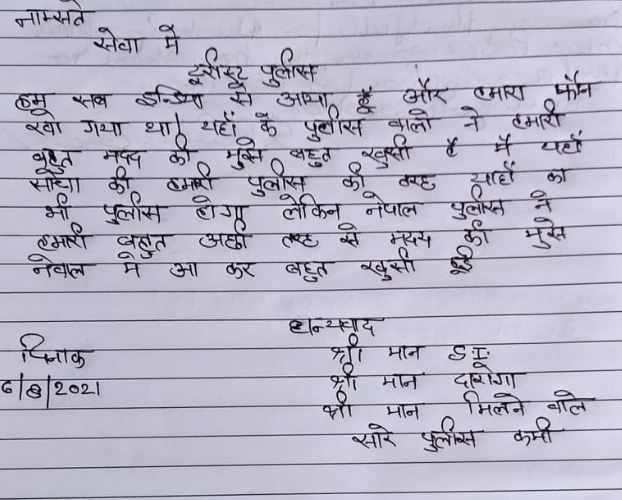 नामस्ते
सेवा में
टुरीस्ट पुलीस
हम सब इन्डिया से आया हूँ और हमारा फोन
खो गया था। यहाँ के पुलीस वालो ने हमारी
बहुत मदद की मुझे बहुत खुसी है मैं यहाँ
सोचा की हमारी पुलीस की तरह याहाँ का
भी पुलीस होगा लेकिन नेपाल पुलीस ने
हमारी बहुत अछी तरह से मदद की मुझे
नेपाल में आ कर बहुत खुसी हुई
धन्यवाद
दिनाक
श्री मान S.I.
6/8/2021
श्री मान दारोगा
श्री मान मिलने वाले
सारे पुलीस कर्मी